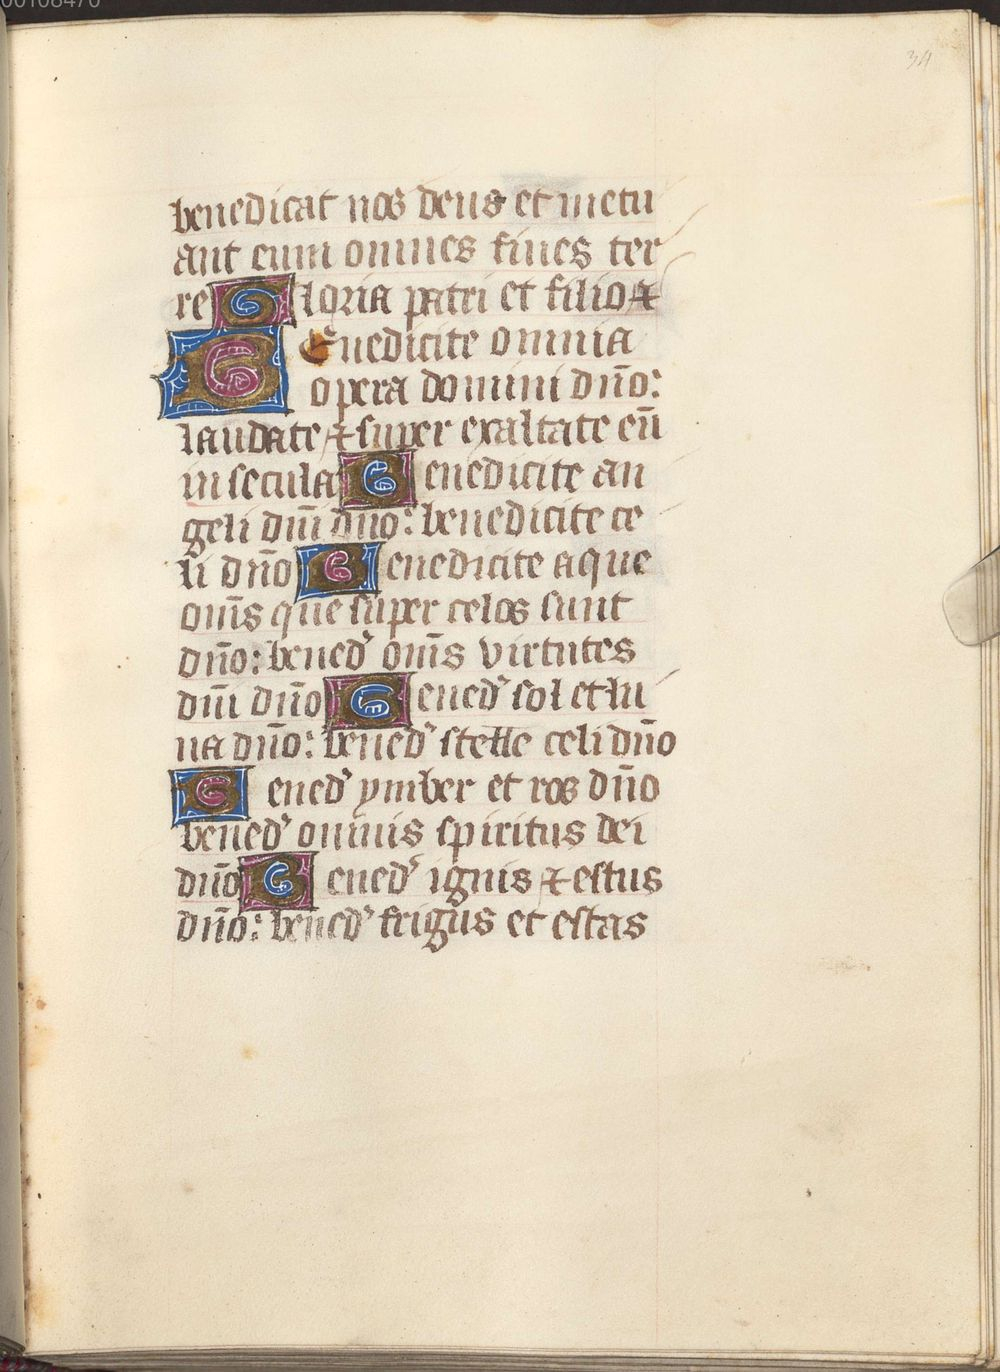 00108470
34
benedicat nos deus et metu
ant eum omnes fines ter
re Gloria patri et filio ⁊
Benedicite omnia
opera domini dn̄o:
laudate ⁊ super exaltate eū
in secula Benedicite an
geli dn̄i dn̄o: benedicite ce
li dn̄o Benedicite aque
om̄s que super celos sunt
dn̄o: bened' om̄s virtutes
dn̄i dn̄o Bened' sol et lu
na dn̄o: bened' stelle celi dn̄o
Bened' ymber et ros dn̄o
bened' omnis spiritus dei
dn̄o Bened' ignis ⁊ estus
dn̄o: bened' frigus et estas